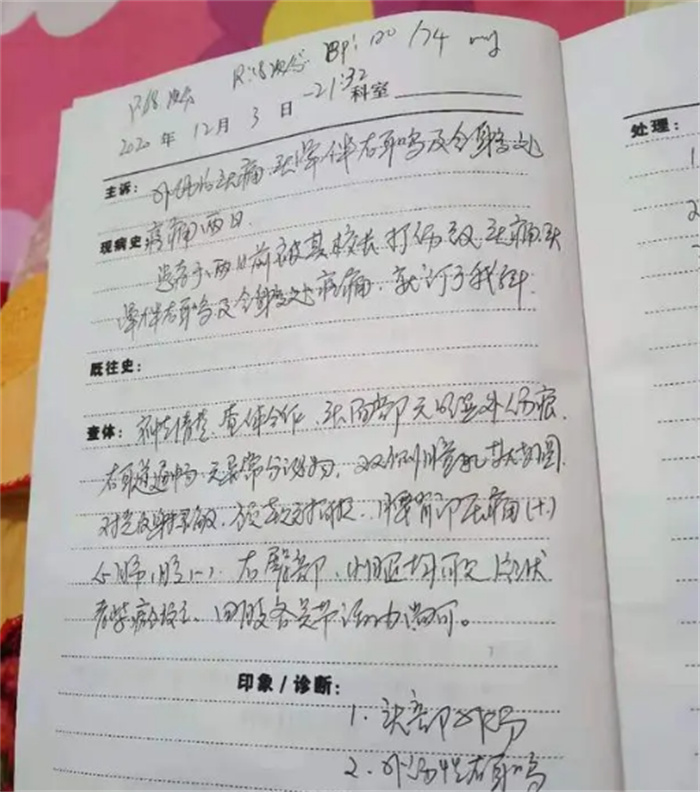 P:68次/分 R:18次/分 BP:120/74 mmHg
2020年12月3日-21:32 科室
主诉:外伤后头痛、头晕伴右耳鸣及全身多处
现病史 疼痛两日
患者于两日前被其校长打伤致头痛、头
晕伴右耳鸣及全身多处疼痛,就诊于我科.
既往史:
查体:神志清楚,查体合作,头面部无明显外伤痕,
右耳道通畅,无异常分泌物,双侧瞳孔等大等圆
对光反射灵敏,颈软无抵抗,腰背部压痛(+)
心肺腹(-),右臀部、均可见片状
青紫 四肢各关节活动尚可。
印象/诊断:
1、头部外伤
2、外伤性右耳鸣
处理:
1
2